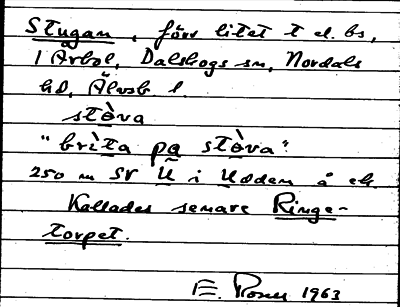 Stugan, förr litet t el. bs,
i Årbol, Dalskogs sn, Nordals
hd, Älvsb l.
stòva
"brìta pa stòva".
250 m SV Ü i Uddem å ek.
Kallades senare Ringe-
torpet.
E. 1963